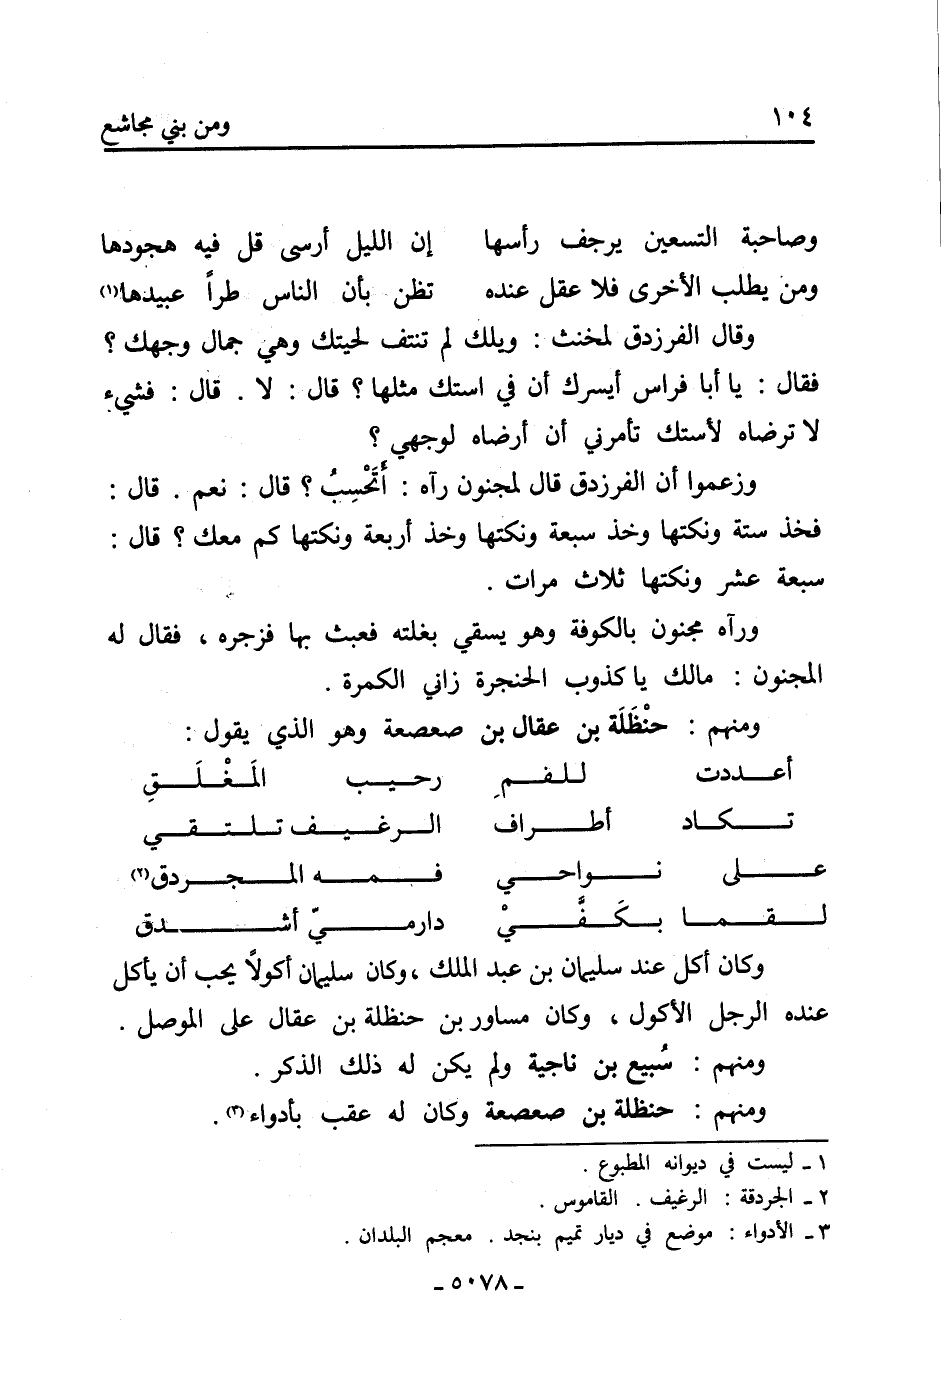 ١٠٤ ومن بني مجاشع
وصاحبة التسعين يرجف رأسها إن الليل أرسى قل فيه هجودها
ومن يطلب الأخرى فلا عقل عنده تظن بأن الناس طراً عبيدها(١)
وقال الفرزدق لمخنث : ويلك لم تنتف لحيتك وهي جمال وجهك ؟
فقال : يا أبا فراس أيسرك أن في استك مثلها ؟ قال : لا . قال : فشيء
لا ترضاه لأستك تأمرني أن أرضاه لوجهي ؟
وزعموا أن الفرزدق قال لمجنون رآه : أَتَحْسِبُ ؟ قال : نعم . قال :
فخذ ستة ونكتها وخذ سبعة ونكتها وخذ أربعة ونكتها كم معك ؟ قال :
سبعة عشر ونكتها ثلاث مرات .
ورآه مجنون بالكوفة وهو يسقي بغلته فعبث بها فزجره ، فقال له
المجنون : مالك يا كذوب الحنجرة زاني الكمرة .
ومنهم : حنْظَلَة بن عقال بن صعصعة وهو الذي يقول :
أعددت للفمِ رحيب المَغْلَقِ
تكاد أطراف الرغيف تلتقي
على نواحي فمه المجردق(٢)
لقما بكَفَّيْ دارميّ أشدق
وكان أكل عند سليمان بن عبد الملك ، وكان سليمان أكولاً يحب أن يأكل
عنده الرجل الأكول ، وكان مساور بن حنظلة بن عقال على الموصل .
ومنهم : سُبيع بن ناجية ولم يكن له ذلك الذكر .
ومنهم : حنظلة بن صعصعة وكان له عقب بأدواء(٣) .
١ ـ ليست في ديوانه المطبوع .
٢ ـ الجردقة : الرغيف . القاموس .
٣ ـ الأدواء : موضع في ديار تميم بنجد . معجم البلدان .
ـ ٥٠٧٨ ـ